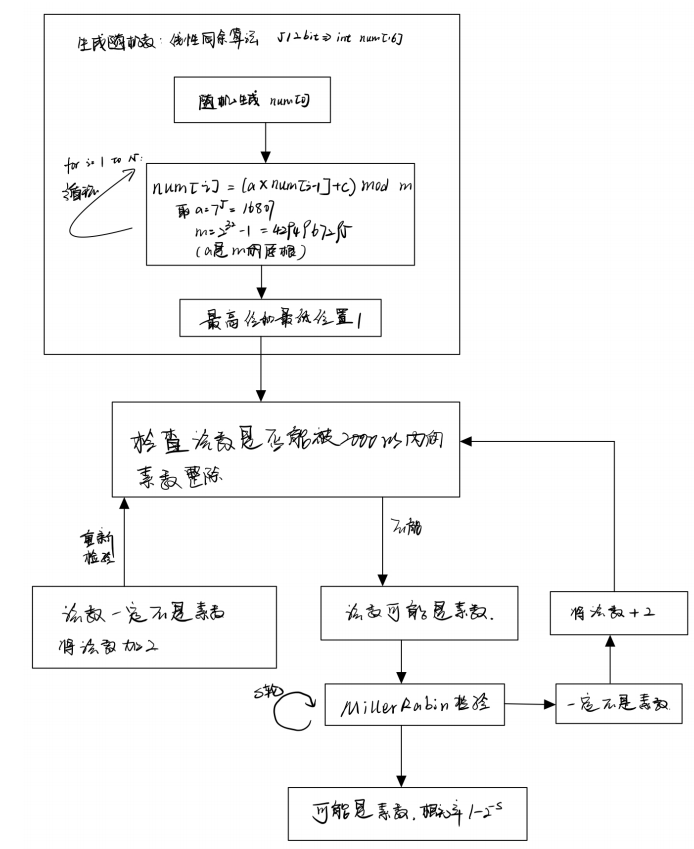 生成随机数：线性同余算法 512bit⇒int num[16]
随机生成 num[0]
for i=1 to 15:
循环
num[i] = (a×num[i-1]+c) mod m
取 a=7^5=16807
m=2^32-1=4294967295
(a是m的原根)
最高位和最低位置1
检查该数是否能被2000以内的
素数整除
重新
检验
不能
该数一定不是素数
将该数加2
该数可能是素数.
将该数+2
s轮
MillerRabin检验
一定不是素数
可能是素数.概率1-2^-s